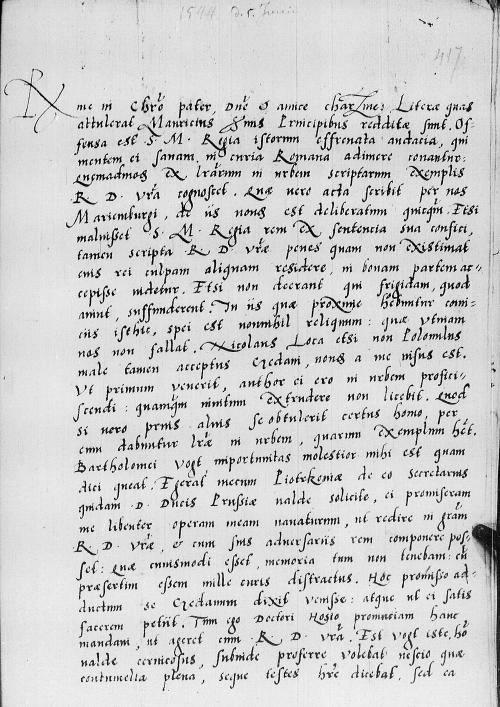 1544 d. 5. Junii
417
Rme in Chro pater, Dne et amice charme: Literæ quas
attulerat Mauricius suis Principibus redditæ sunt. Of-
fensa est S. M. Regia istorum effrenata audacia, qui
mentem ei sanam, in curia Romana adimere conantur:
quemadmodum ex lrarum in urbem scriptarum exemplis
R. D. vra cognoscet. Quæ vero acta scribit per nos
Marienburgi, de iis nondum est deliberatum quicquam. Etsi
maluisset S. M. Regia rem ex sententia sua confici,
tamen scripta R. D. vræ penes quam non existimat
eius rei culpam aliquam residere, in bonam partem ac-
cepisse videtur. Etsi non deerant qui frigidam, quod
aiunt, suffunderent. In iis quæ proxime habentur comi-
ciis isthic, spei est nonnihil reliquum: quæ utinam
nos non fallat. Nicolaus Loca etsi non Polonulus
male tamen acceptus credam, nondum a me visus est.
Ut primum venerit, author ei ero in urbem profici-
scendi: quamquam invitum extrudere non licebit. Quod
si vero prius alius se obtulerit certus homo, per
eum dabuntur lræ in urbem, quarum exemplum het.
Bartholomei Vogt importunitas molestior mihi est quam
dici queat. Egerat mecum Piotrkoviæ de eo secretarius
quidam D. Ducis Prussiæ valde solicite, ei promiseram
me libenter operam meam navaturum, ut redire in gram
R. D. vræ, et cum suis adversariis rem componere pos-
set: quæ cuiusmodi esset, memoria tum non tenebam: cum
præsertim essem mille curis distractus. Hoc promisso ad-
ductum se credamum dixit venisse: atque ut ei satis
facerem petiit. Tum ego Doctori Hosio provinciam hanc
mandavi, ut ageret cum R. D. vra. Est Vogt iste, ho
valde cervicosus, subinde proferre volebat nescio quæ
contumelia plena, seque testes hre dicebat, sed ea